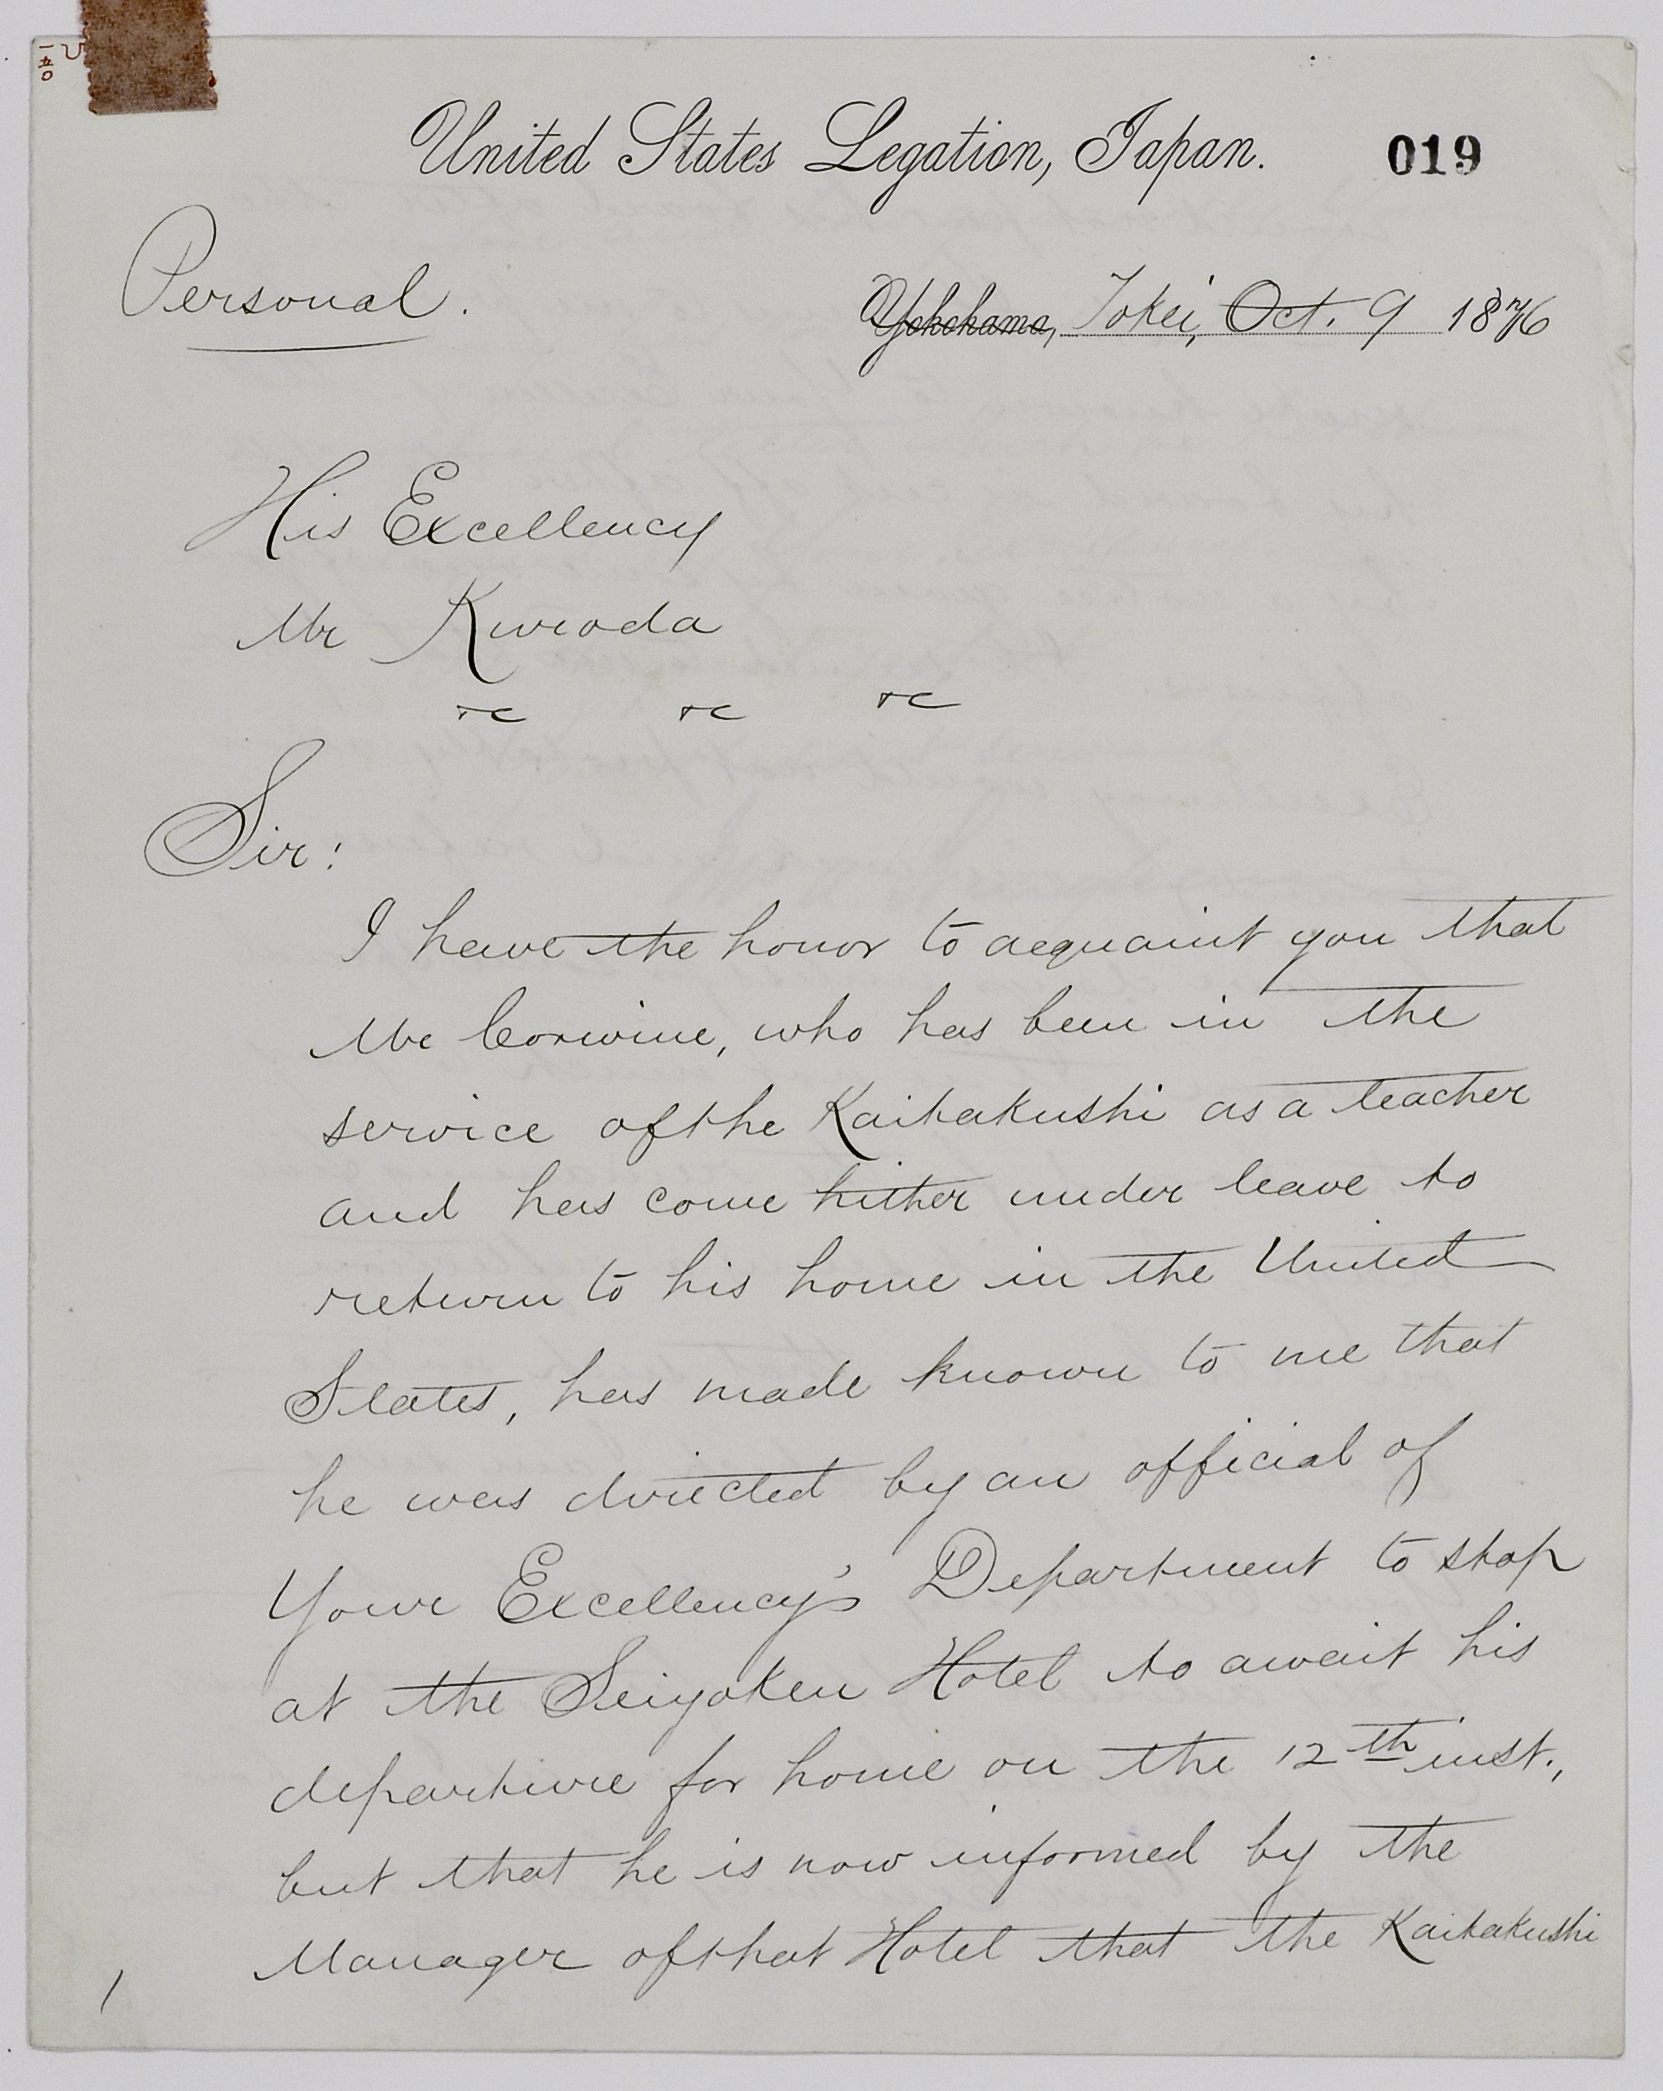 一五〇
United States Legation, Japan.
019
Personal.
Yokohama, Tokei, Oct. 9 1876
His Excellency
Mr Kuroda
&c &c &c
Sir:
I have the honor to acquaint you that
Mr Corwine, who has been in the
service of the Kaitakushi as a teacher
and has come hither under leave to
return to his home in the United
States, has made known to me that
he was directed by an official of
Your Excellency's Department to stop
at the Seiyoken Hotel to await his
departure for home on the 12th inst.,
but that he is now informed by the
Manager of that Hotel that the Kaitakushi
1